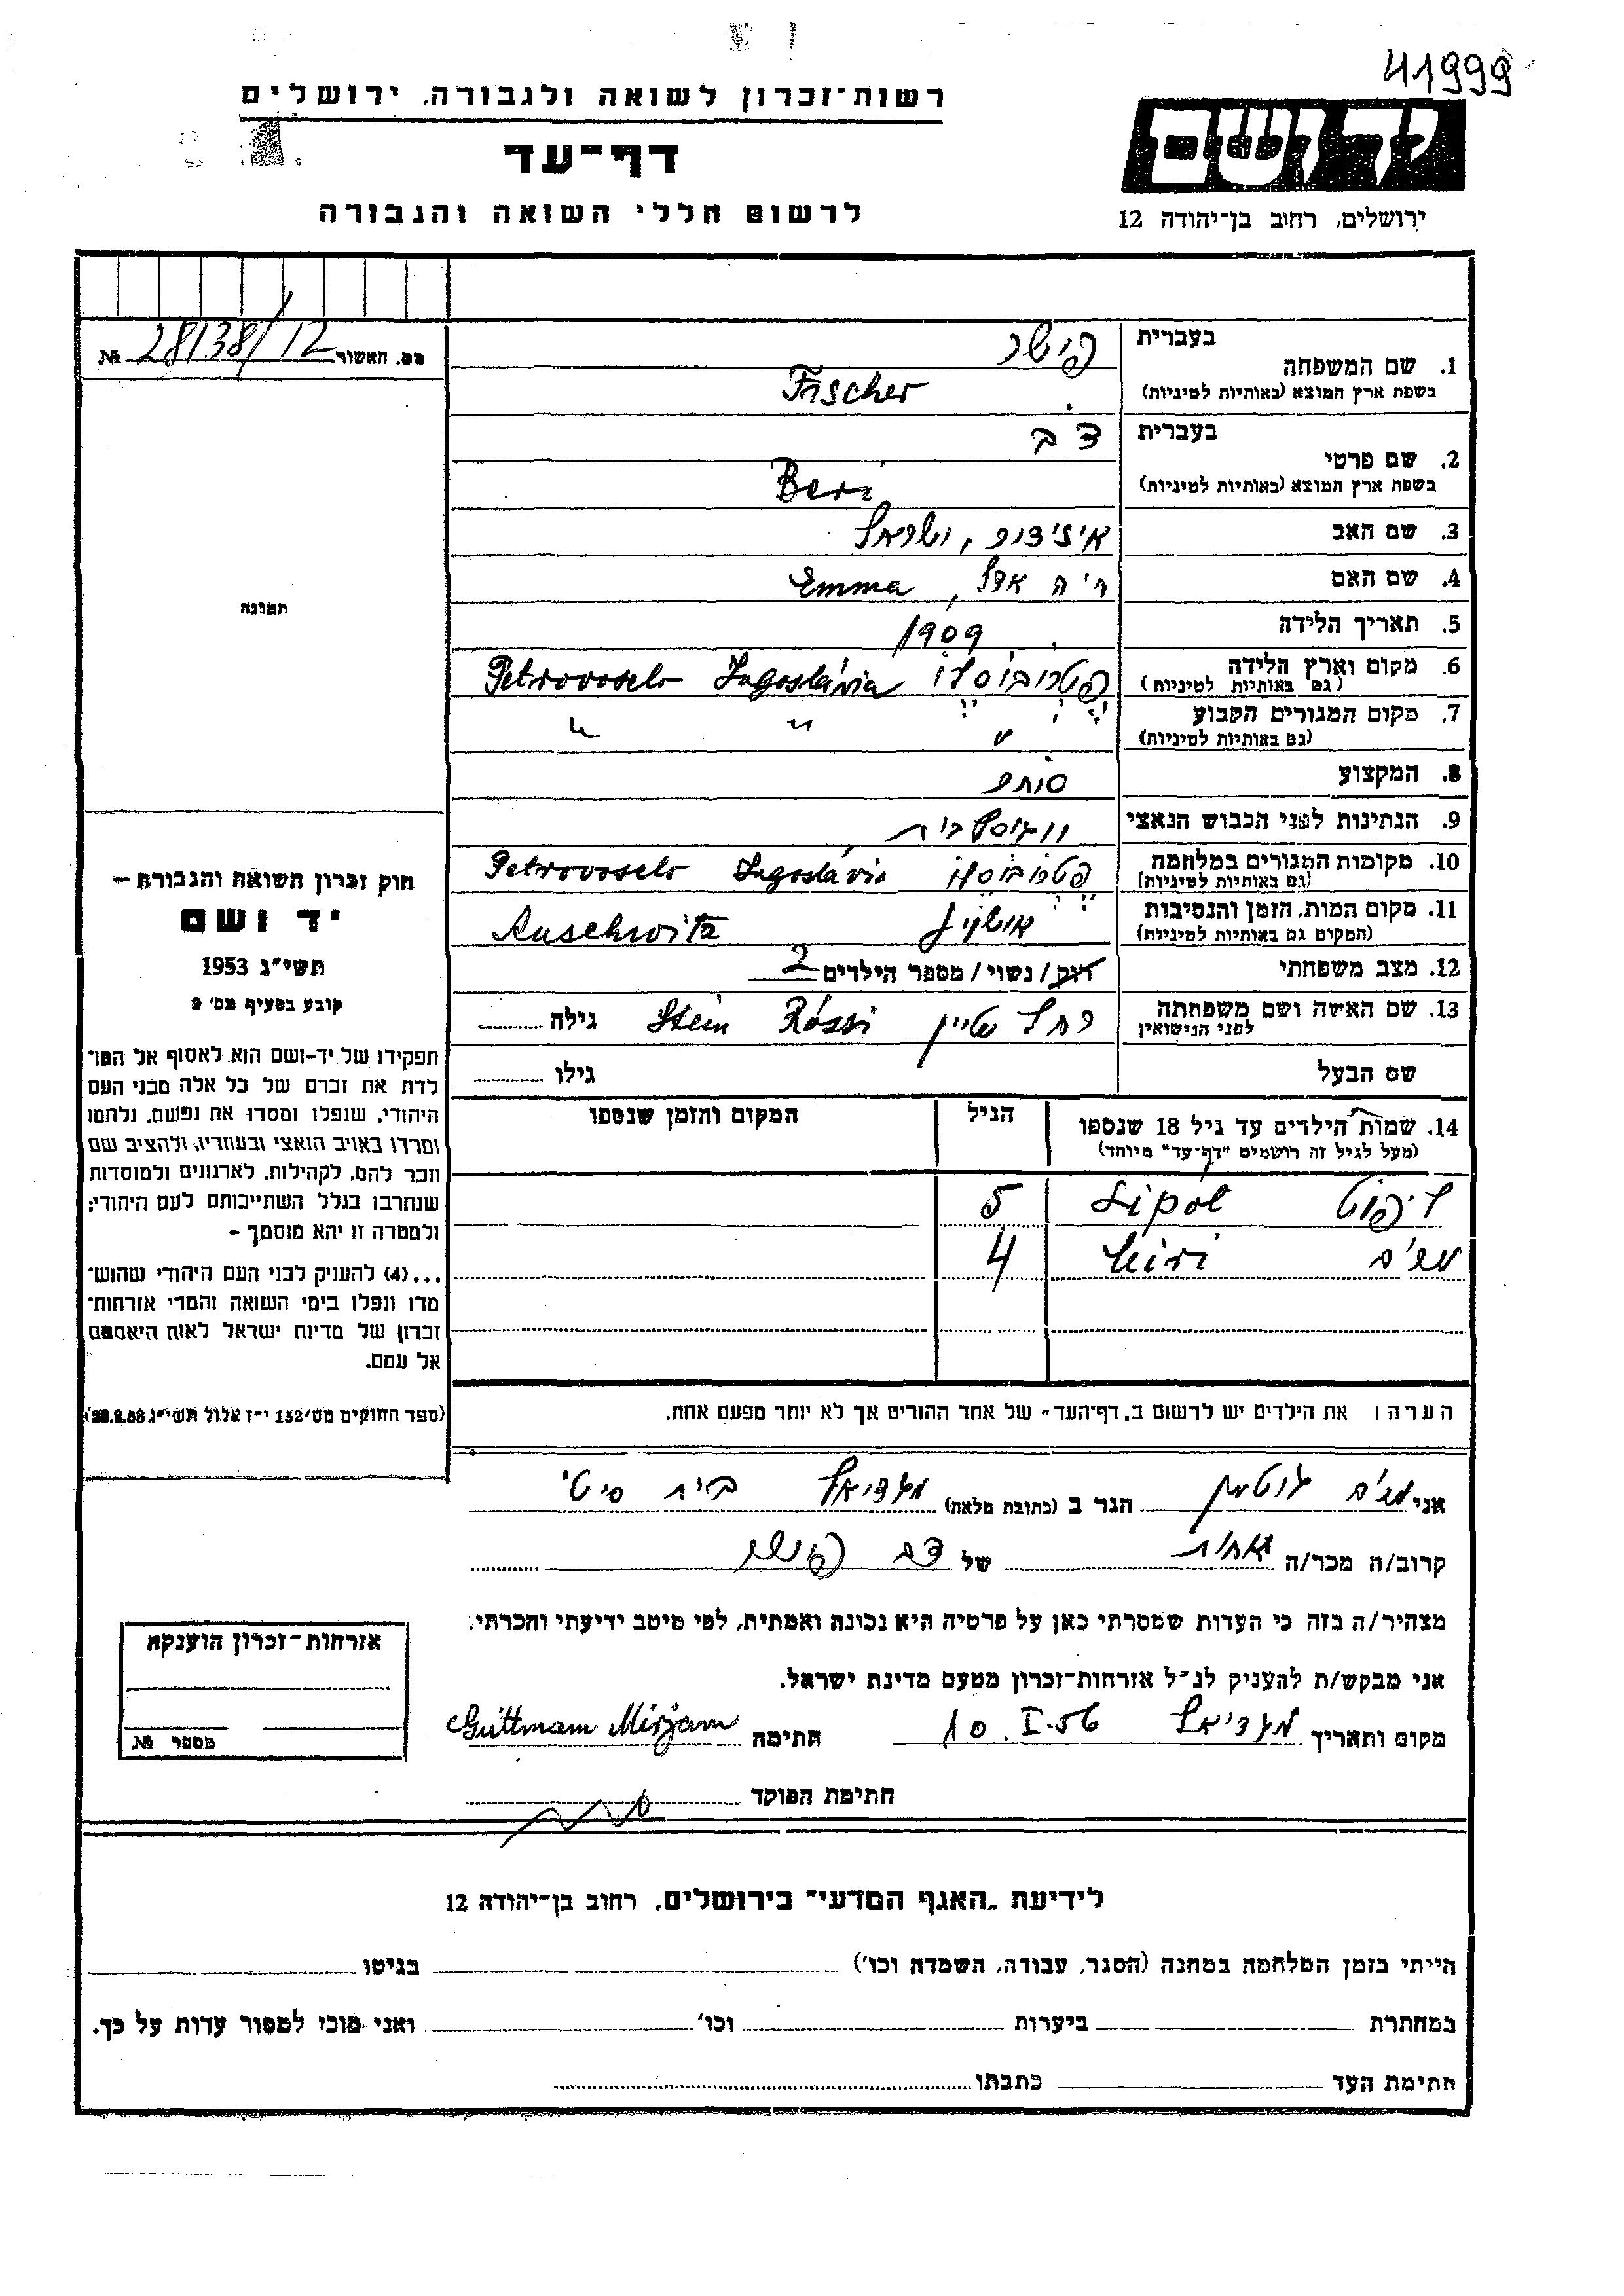 41999
רשות־זכרון לשואה ולגבורה, ירושלים
דף־עד
לרשום חללי השואה והגבורה
יד ושם
ירושלים, רחוב בן־יהודה 12
מס. האשור 28138/12 №
תמונה
חוק זכרון השואה והגבורה —
יד ושם
תשי״ג 1953
קובע בסעיף מס׳ 2
תפקידו של יד-ושם הוא לאסוף אל המו־
לדת את זכרם של כל אלה מבני העם
היהודי, שנפלו ומסרו את נפשם, נלחמו
ומרדו באויב הנאצי ובעוזריו, ולהציב שם
וזכר להם, לקהילות, לארגונים ולמוסדות
שנחרבו בגלל השתייכותם לעם היהודי;
ולמטרה זו יהא מוסמך —
...(4) להעניק לבני העם היהודי שהוש־
מדו ונפלו בימי השואה והמרי אזרחות־
זכרון של מדינת ישראל לאות היאספם
אל עמם.
(ספר החוקים מס׳ 132 י״ז אלול תשי״ג 28.8.53)
בעברית פישר
1. שם המשפחה
בשפת ארץ המוצא (באותיות לטיניות) Fischer
בעברית דב
2. שם פרטי
בשפת ארץ המוצא (באותיות לטיניות) Beri
3. שם האב איזידור, ישראל
4. שם האם חיה אדל, Emma
5. תאריך הלידה 1909
6. מקום וארץ הלידה פטרובוסלו Petrovoselo Jugoslávia
(גם באותיות לטיניות)
7. מקום המגורים הקבוע " " "
(גם באותיות לטיניות)
8. המקצוע סוחר
9. הנתינות לפני הכבוש הנאצי יוגוסלבית
10. מקומות המגורים במלחמה פטרובוסלו Petrovoselo Jugoslávia
(גם באותיות לטיניות)
11. מקום המות, הזמן והנסיבות אושויץ Auschwitz
(המקום גם באותיות לטיניות)
12. מצב משפחתי רווק / נשוי / מספר הילדים 2
13. שם האשה ושם משפחתה רחל שטיין Stein Róssi גילה
לפני הנישואין
שם הבעל גילו
14. שמות הילדים עד גיל 18 שנספו הגיל המקום והזמן שנספו
(מעל לגיל זה רושמים ״דף־עד״ מיוחד)
ליפוט Lipót 5
מרים Miri 4
הערה: את הילדים יש לרשום ב„דף־העד״ של אחד ההורים אך לא יותר מפעם אחת.
אני מרים גוטמן הגר ב (כתובת מלאה) מגדיאל
קרוב/ה מכר/ה אחות של דב פישר
מצהיר/ה בזה כי העדות שמסרתי כאן על פרטיה היא נכונה ואמתית, לפי מיטב ידיעתי והכרתי.
אני מבקש/ת להעניק לנ״ל אזרחות־זכרון מטעם מדינת ישראל.
מקום ותאריך מגדיאל 10.I.56 חתימה Guttmann Mirjam
חתימת הפוקד
אזרחות־זכרון הוענקה
מספר №
לידיעת „האגף המדעי״ בירושלים, רחוב בן־יהודה 12
הייתי בזמן המלחמה במחנה (הסגר, עבודה, השמדה וכו׳) בגיטו
במחתרת ביערות וכו׳ ואני מוכן למסור עדות על כך.
חתימת העד כתבתו